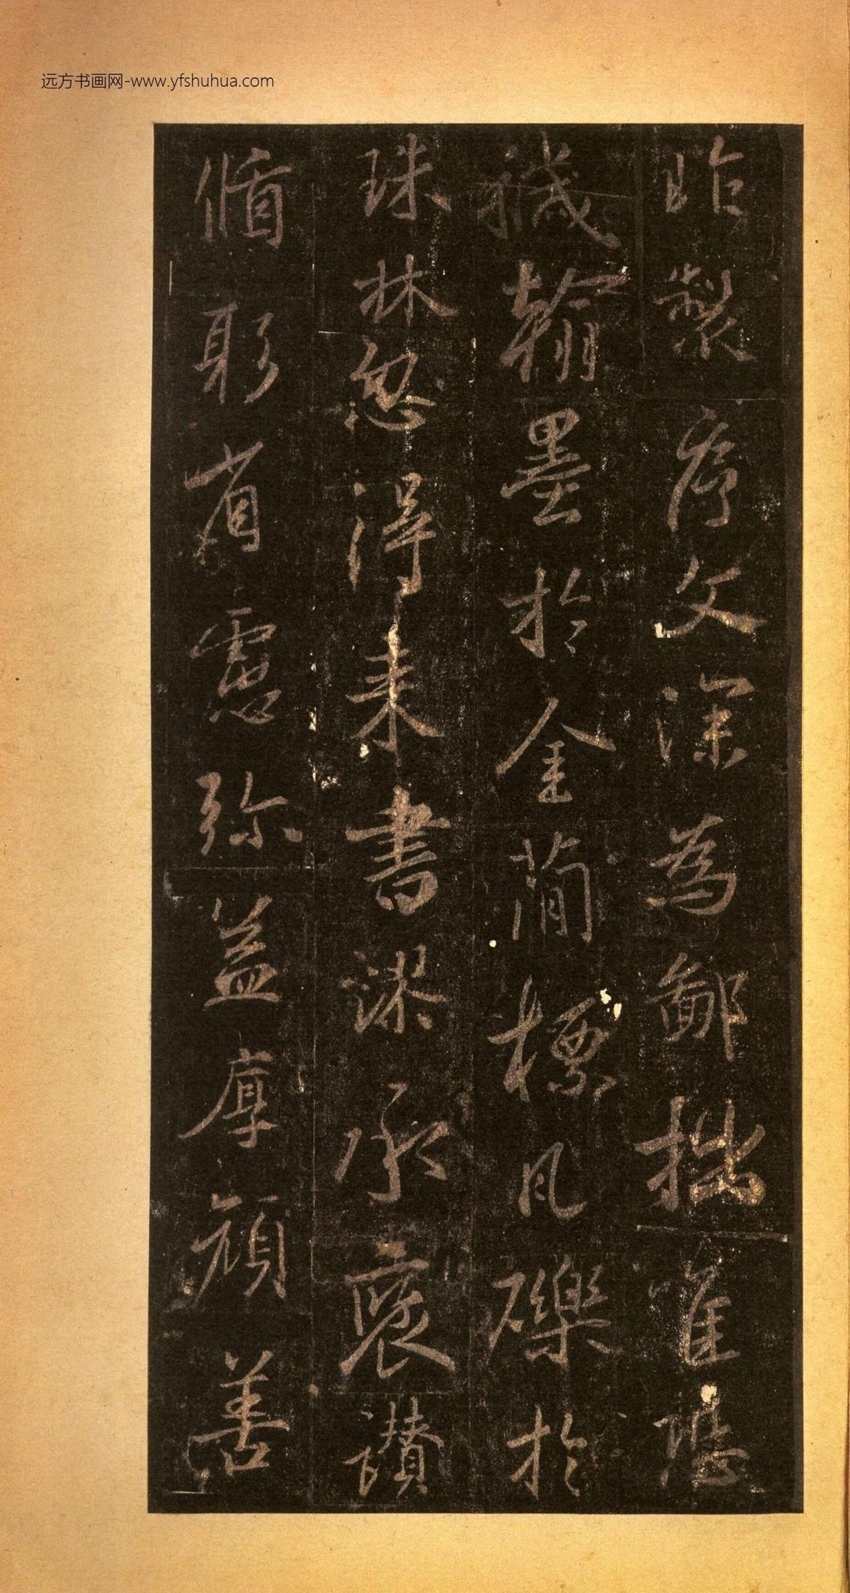 远方书画网-www.yfshuhua.com
昨製序文深為鄙拙唯恐
穢翰墨於金簡標瓦礫於
珠林忽得来書謬承褒讚
脩躬省慮弥益厚顔善